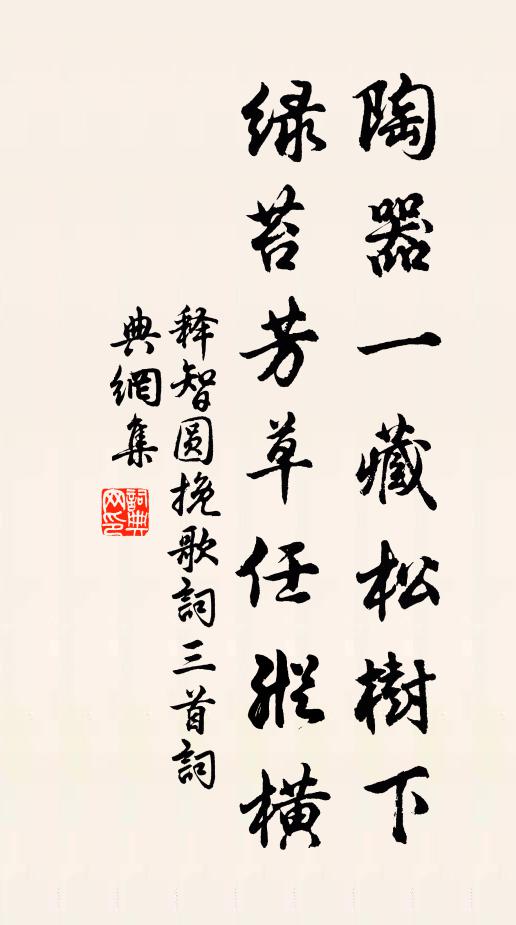 陶器一藏松樹下
緑苔芳草任縱橫
释智圓挽歌詞三首詞
典網集
詞典網印